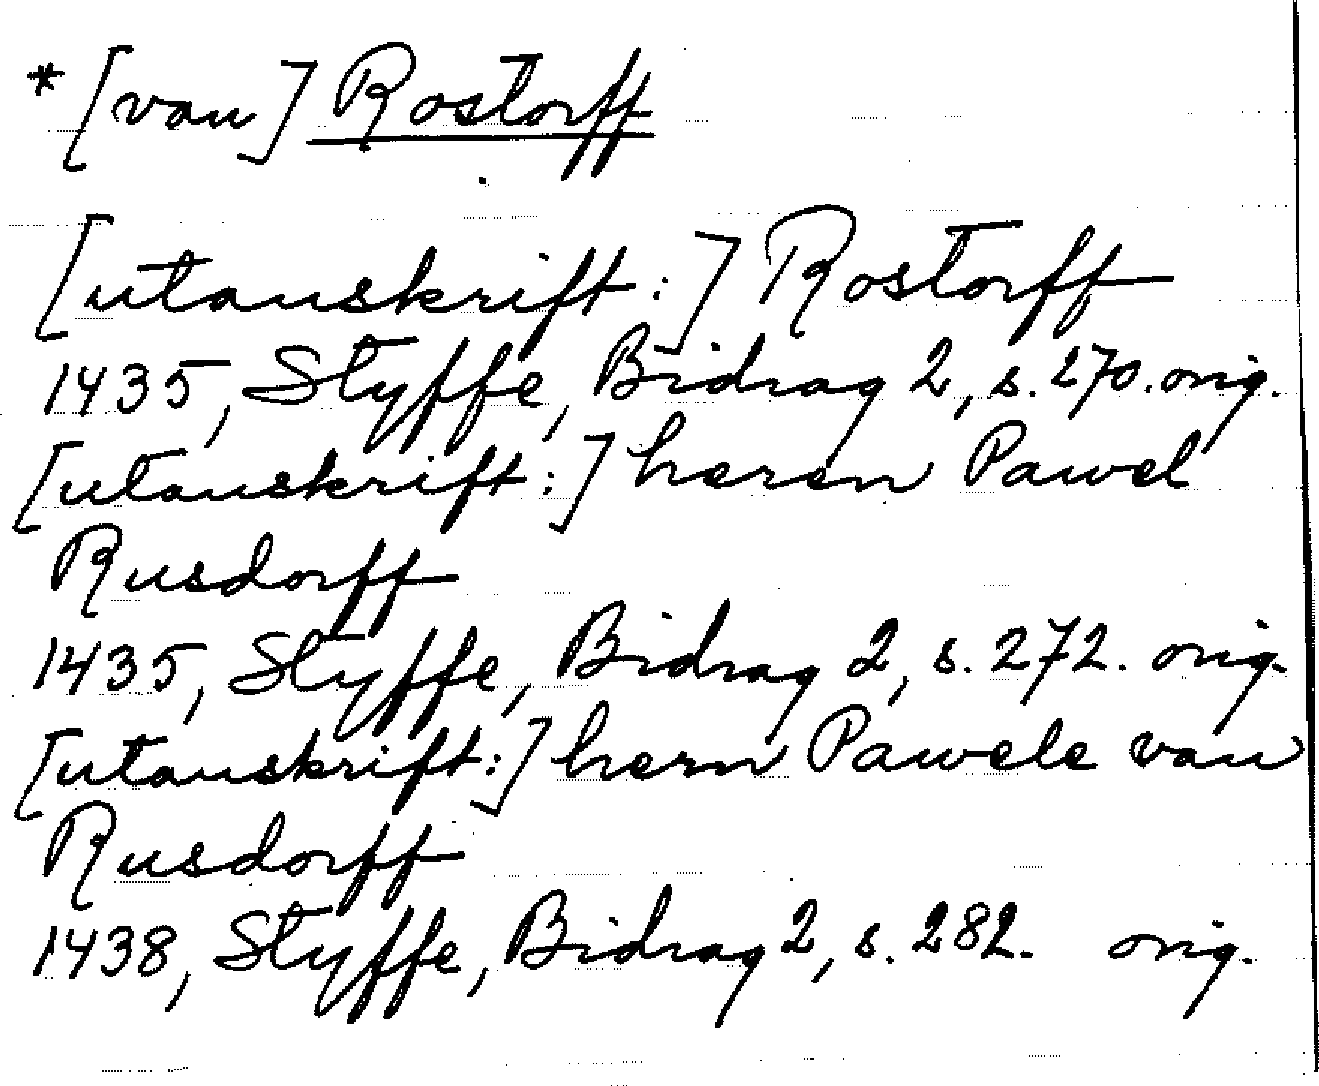 *[van] Rostorff
[utanskrift:] Rostorff
1435, Styffe, Bidrag 2, s. 270. orig.
[utanskrift:] heren Pawel
Rusdorff
1435, Styffe, Bidrag 2, s. 272. orig.
[utanskrift:] hern Pawele van
Rusdorff
1438, Styffe, Bidrag 2, s. 282. orig.